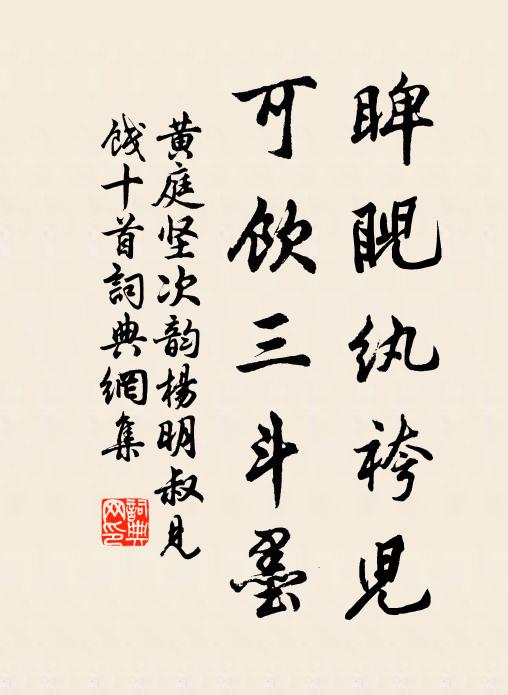 睥睨纨袴児
可饮三斗墨
黄庭坚次韵杨明叔见
饯十首詞典網集
詞典
网印